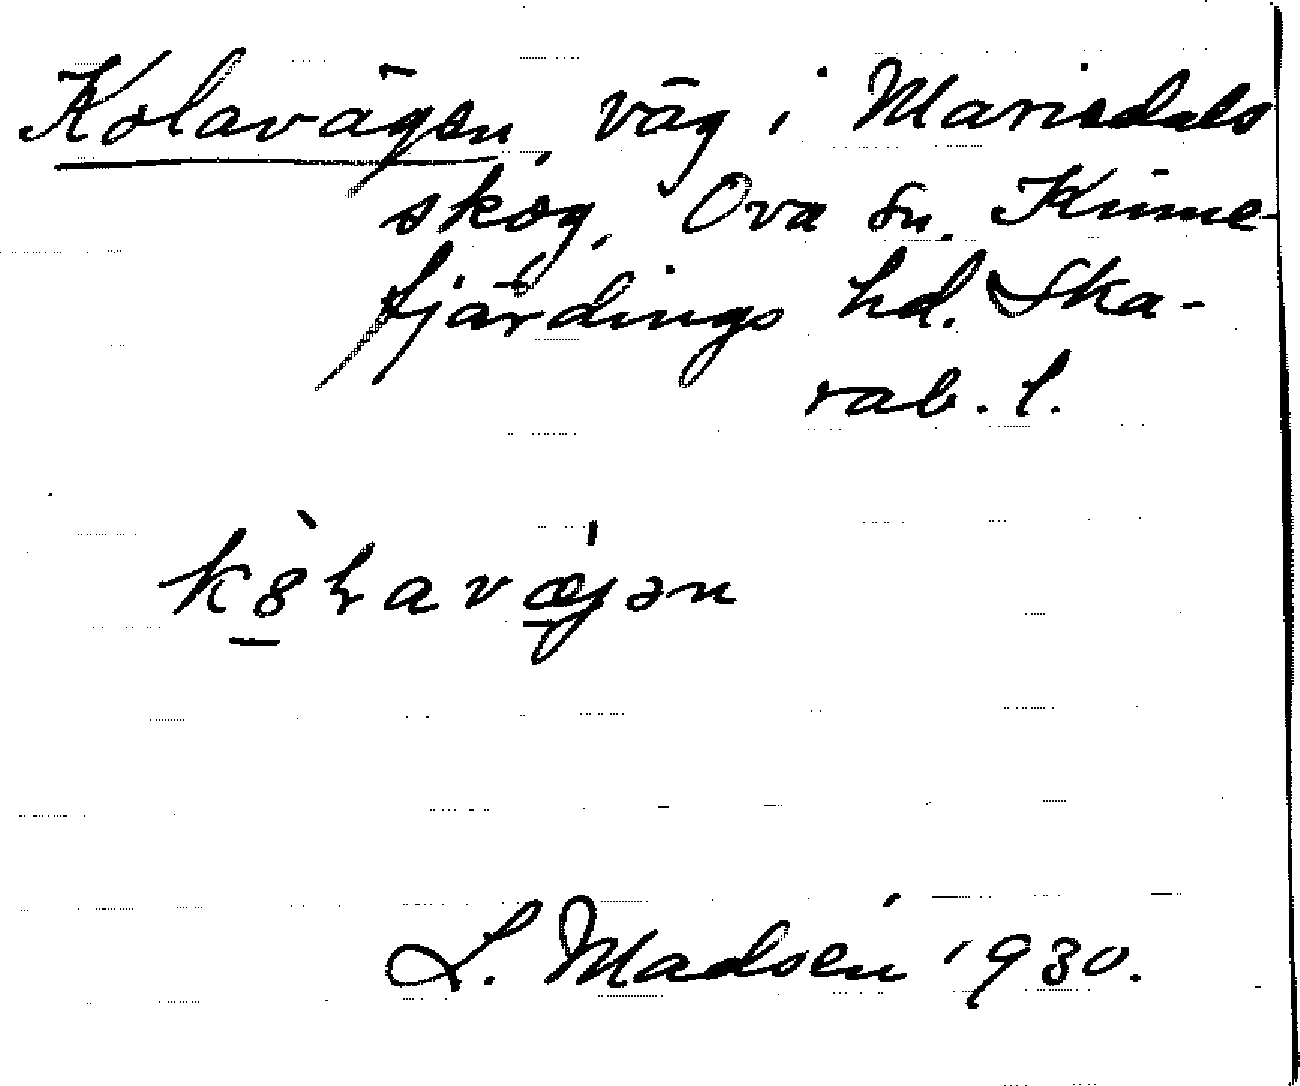 Kolavägen, väg i Mariedals
skog, Ova sn. Kinne-
fjärdings hd. Ska-
rab. l.
L. Madsén 1930.